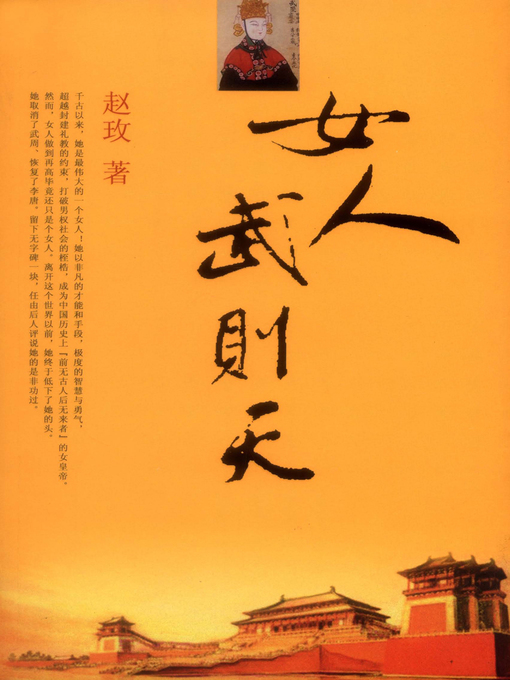 女人
武則天
赵玫 著
千古以来，她是最伟大的一个女人！她以非凡的才能和手段，极度的智慧与勇气，
超越封建礼教的约束，打破男权社会的桎梏，成为中国历史上『前无古人后无来者』的女皇帝。
然而，女人做到再高毕竟还只是个女人。离开这个世界以前，她终于低下了她的头。
她取消了武周、恢复了李唐。留下无字碑一块，任由后人评说她的是非功过。